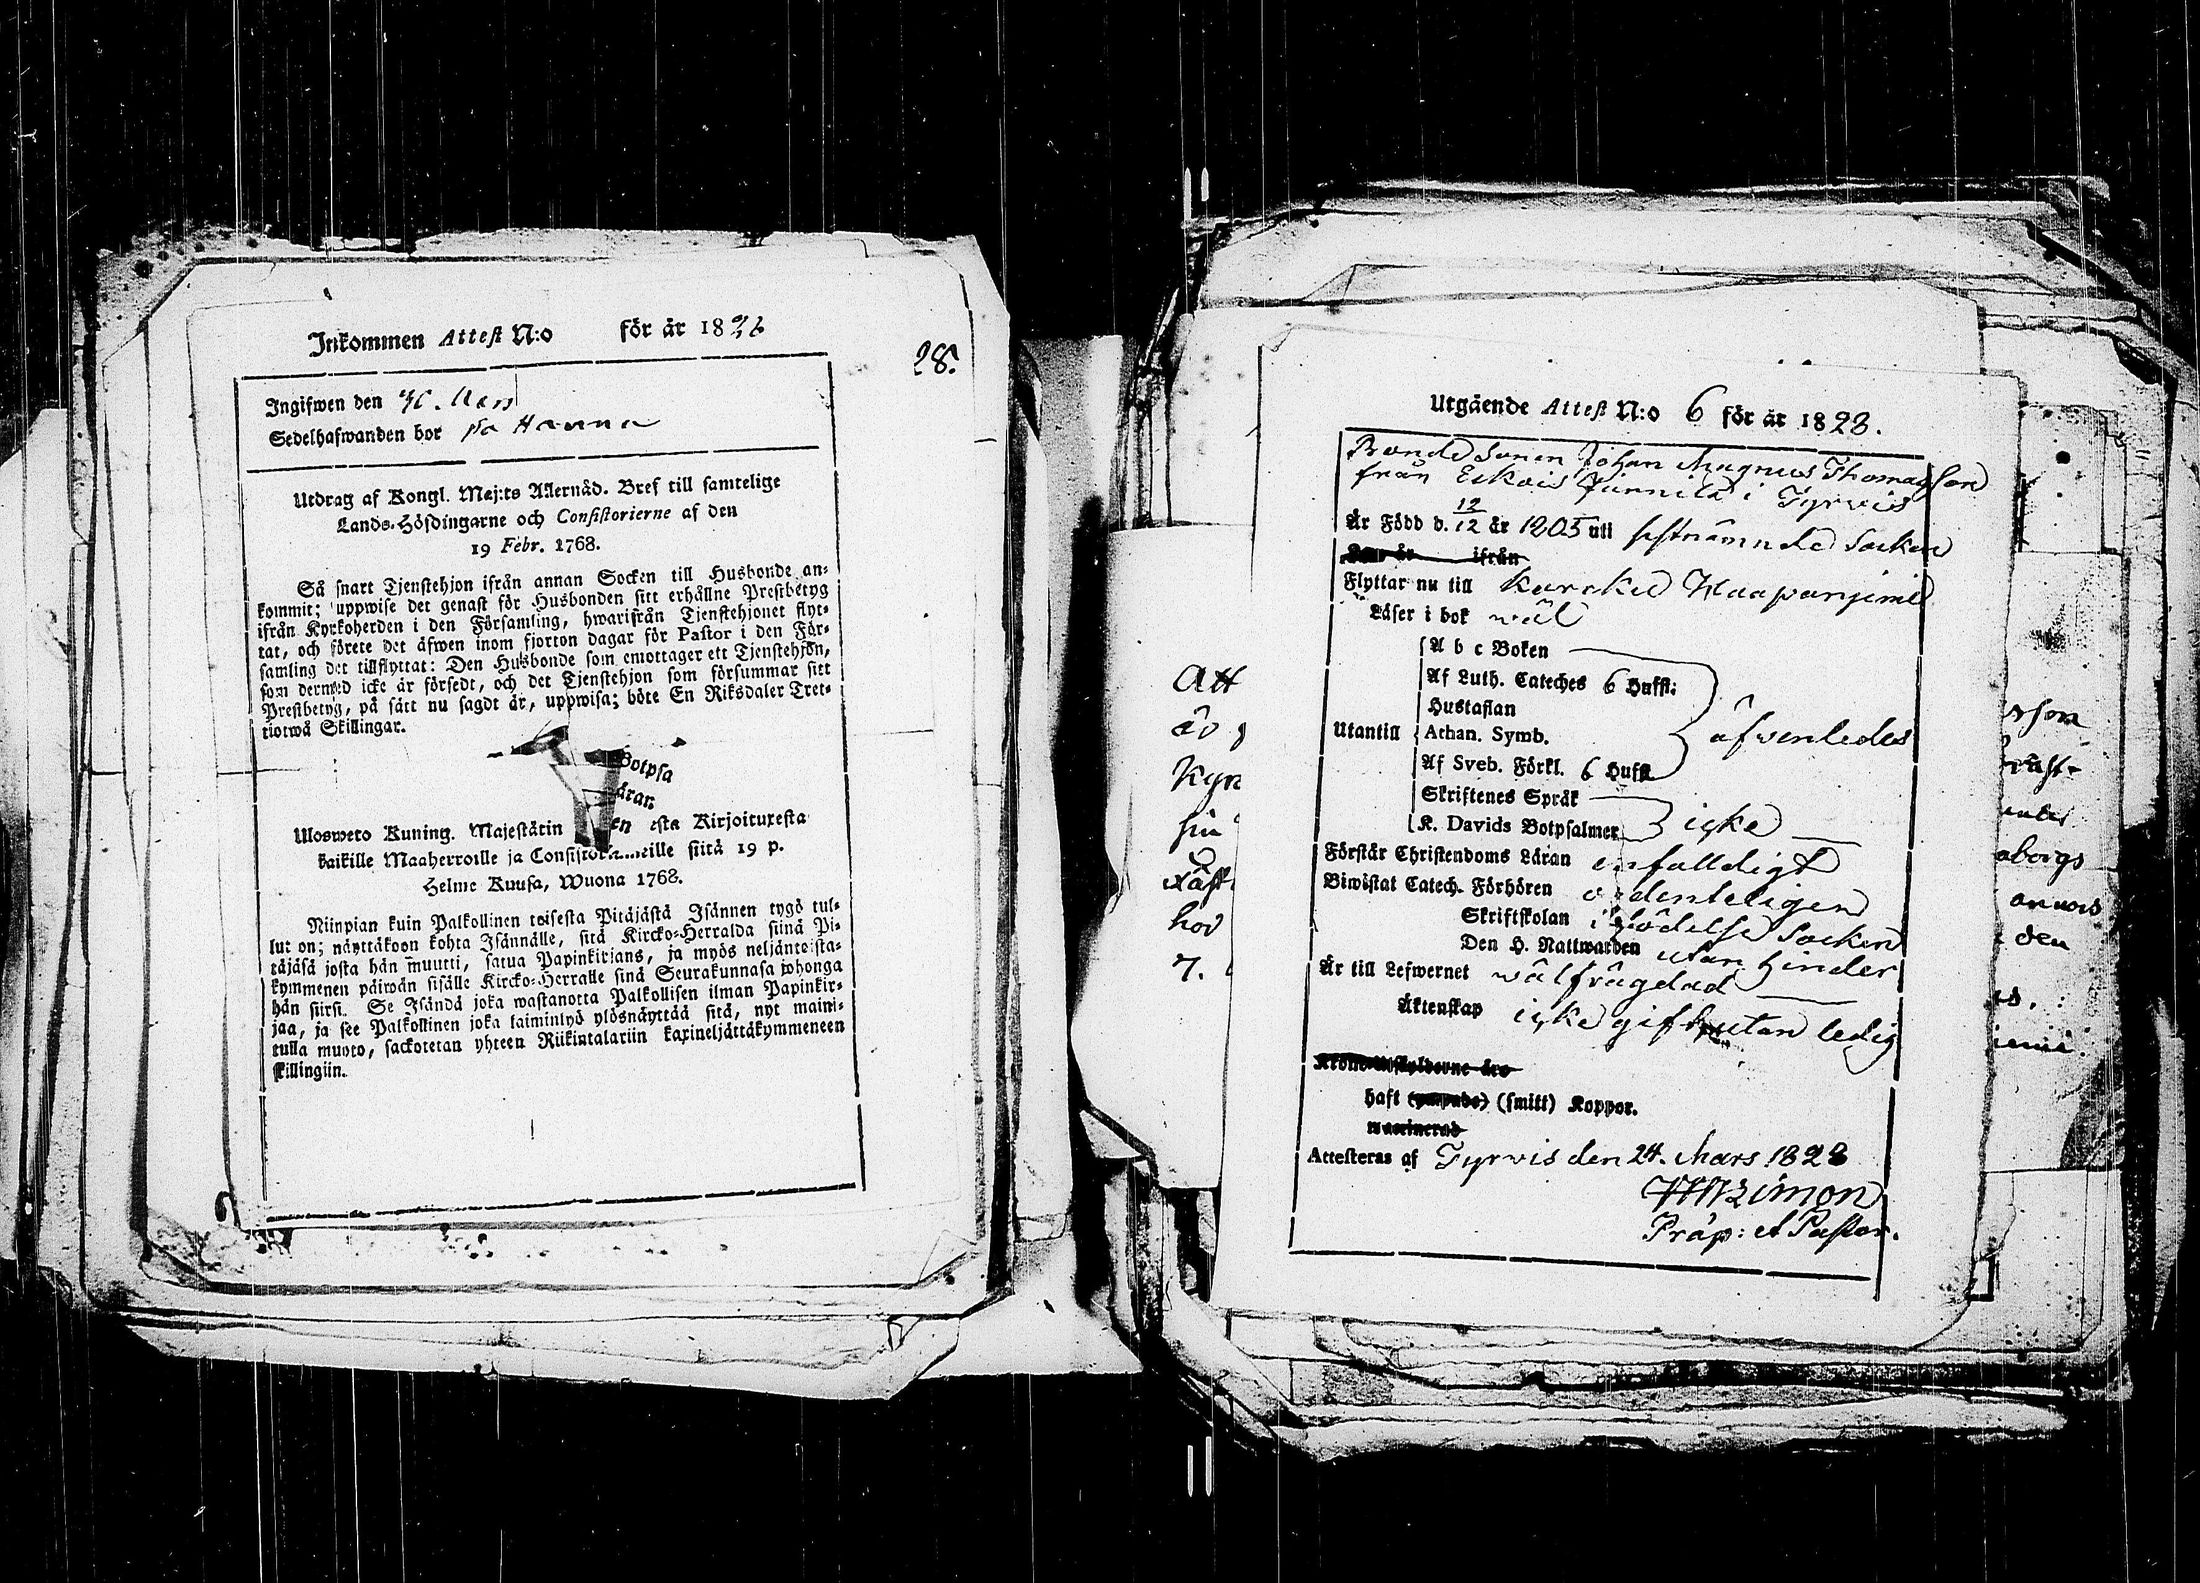 Inkommen Attest N:o för år 18
28.
Ingifwen den Mars
Sedelhafwanden bor
Utdrag af Kongl. Maj:ts Allernåd. Bref till samtelige
Lands-Höfdingarne och Consistorierne af den
19 Febr. 1768.
Så snart Tjenstehjon ifrån annan Socken till Husbonde an-
kommit; uppwise det genast för Husbonden sitt erhållne Prestbetyg
ifrån Kyrkoherden i den Församling, hwarifrån Tjenstehjonet flyt-
tat, och förete det äfwen inom fjorton dagar för Pastor i den För-
samling det tillflyttat: Den Husbonde som emottager ett Tjenstehjon,
som dermed icke är försedt, och det Tjenstehjon som försummar sitt
Prestbetyg, på sätt nu sagdt är, uppwisa; böte En Riksdaler Tret-
tiotwå Skillingar.
Botpsa
äran
en
Ulosweto Kuning. Majestätin esta Kirjoituxesta
kaikille Maaherroille ja siitä 19 p.
Helme Kuusa, Wuona 1768.
Niinpian kuin Palkollinen toisesta Pitäjästä Isännen tygö tul-
lut on; näyttäkoon kohta Isännälle, sitä Kircko-Herralda siinä Pi-
täjäsä josta hän muutti, satua Papinkirjans, ja myös neljäntoista-
kymmenen päiwän sisälle Kircko-Herralle siinä Seurakunnasa johonga
hän siirsi. Se Isändä joka wastanotta Palkollisen ilman Papinkir-
jaa, ja see Palkollinen joka laiminlyö ylösnäyttää sitä, nyt maini-
tulla muoto, sackotetan yhteen Riikintalariin kaxineljättäkymmeneen
skillingiin.
Utgående Attest N:o 6 för år 1823.
Bonde Sonen Johan Magnus Thomasson
från Eskois Junnila i Tyrvis
Är Född d. 12/12 år 1805 uti sistnämnde Socken
ifrån
Flyttar nu till Karcku Haapaniemi
Läser i bok wäl
A b c Boken
Af Luth. Cateches 6 Hufst:
Hustaflan
Utantill Athan. Symb. äfwenledes
Af Sveb. Förkl. 6 Hufst
Skriftenes Språk
K. Davids Botpsalmer icke
Förstår Christendoms Läran enfaldigt
Biwistat Catech. Förhören ordenteligen
Skriftskolan i födelse Socken
Den H. Nattwarden utan hinder
Är till Lefwernet wälfrägdad
Äktenskap icke gift utan ledig
haft (smitt) Koppor.
Attesteras af Tyrvis den 24. Mars 1823
Präp: et Pastor.
Att
Kyr
hos
7.
sson
aborgs
annors
den